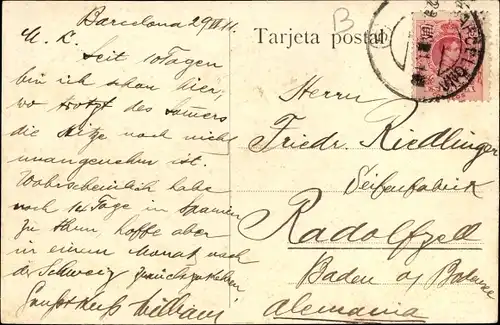 Barcelona 29 VII 11.
M. L.
Seit 10 Tagen
bin ich schon hier,
wo trotzt des Somers
die Hitze noch nicht
unangenehm ist.
Wahrscheinlich habe
noch 14 Tage in Spanien
zu thun, hoffe aber
in einem Monat nach
der Schweiz zurückzukehren.
William
Tarjeta postal
B
Herrn
Friedr. Riedlinger
Seifenfabrik
Radolfzell
Baden a/ Bodensee
Alemania